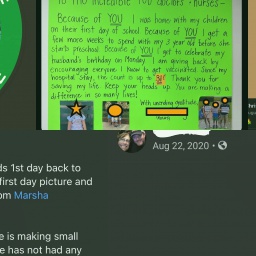 To the incredible doctors + nurses-
Because of YOU I was home with my children
on their first day of school Because of YOU I get a
few more weeks to spend with my 3 year old before she
starts preschool Because of YOU I get to celebrate my
husband's birthday on Monday! I am giving back by
encouraging everyone I know to get vaccinated Since my
hospital stay, the count is up to Thank you for
saving my life Keep your heads up You are making a
difference in so many lives!
With unending gratitude,
Aug 22, 2020
ds 1st day back to
first day picture and
om Marsha
e is making small
e has not had any